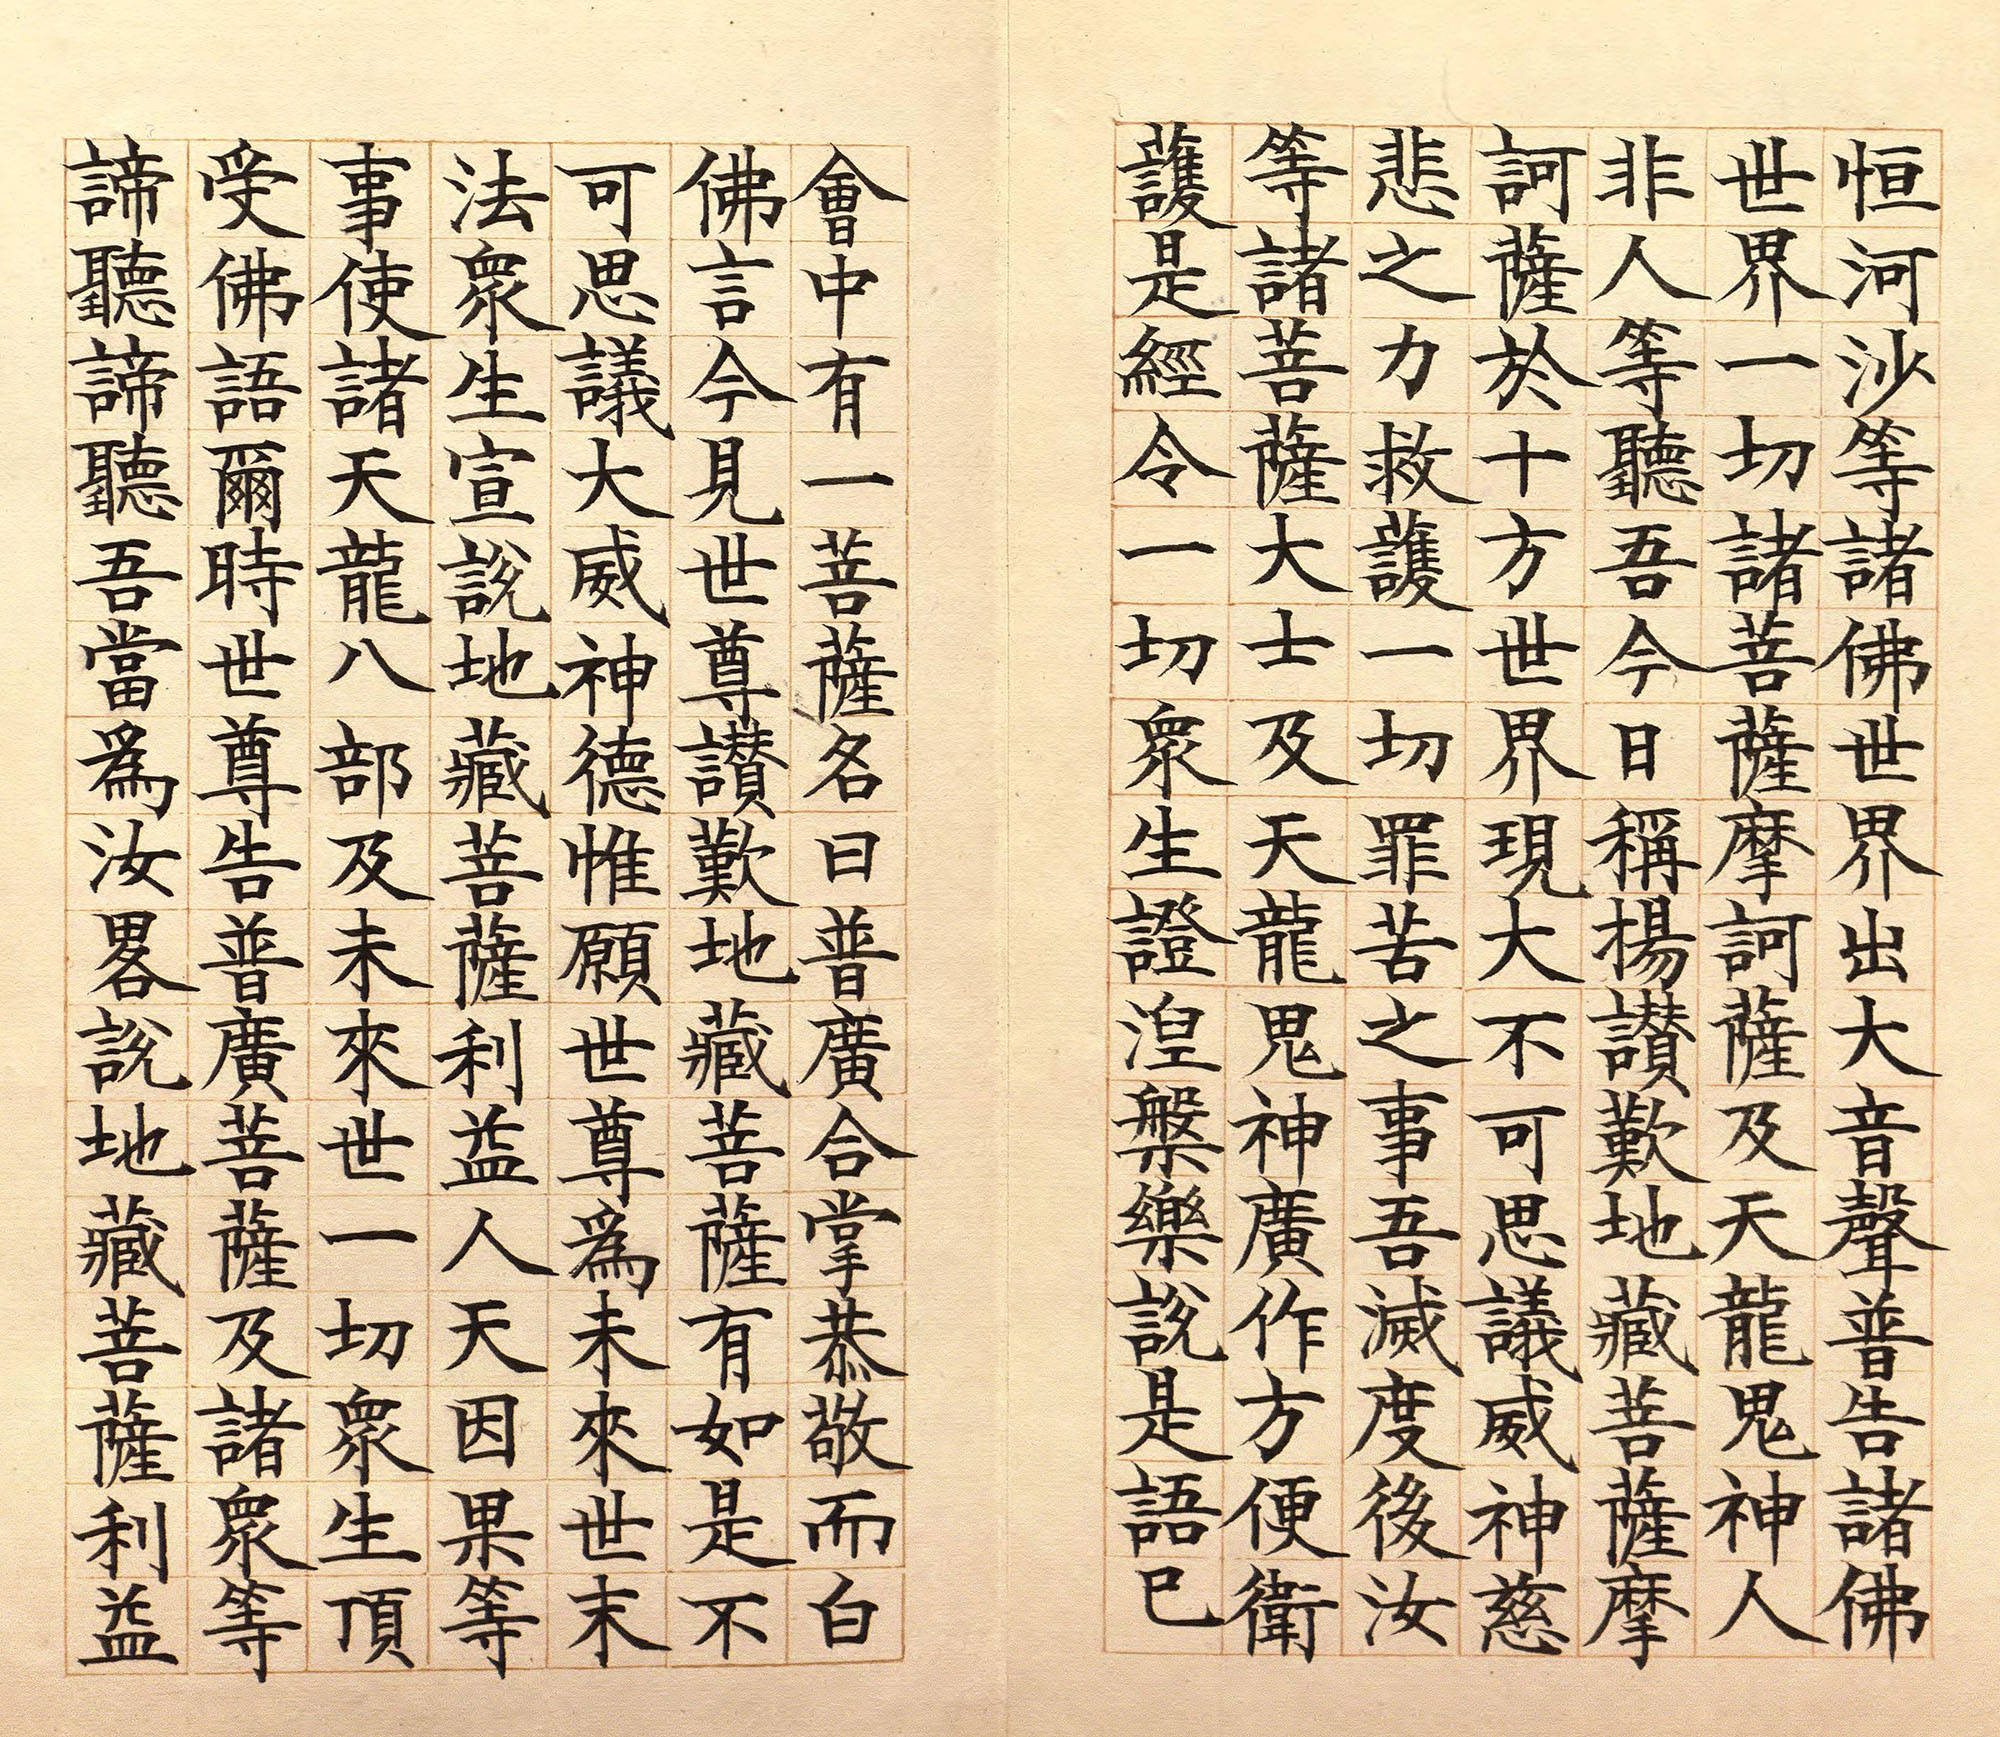 恒河沙等諸佛世界出大音聲普告諸佛
世界一切諸菩薩摩訶薩及天龍鬼神人
非人等聽吾今日稱揚讚歎地藏菩薩摩
訶薩於十方世界現大不可思議威神慈
悲之力救護一切罪苦之事吾滅度後汝
等諸菩薩大士及天龍鬼神廣作方便衛
護是經令一切眾生證湼槃樂說是語已
會中有一菩薩名曰普廣合掌恭敬而白
佛言今見世尊讚歎地藏菩薩有如是不
可思議大威神德惟願世尊為未來世末
法眾生宣說地藏菩薩利益人天因果等
事使諸天龍八部及未來世一切眾生頂
受佛語爾時世尊告普廣菩薩及諸眾等
諦聽諦聽吾當為汝畧說地藏菩薩利益